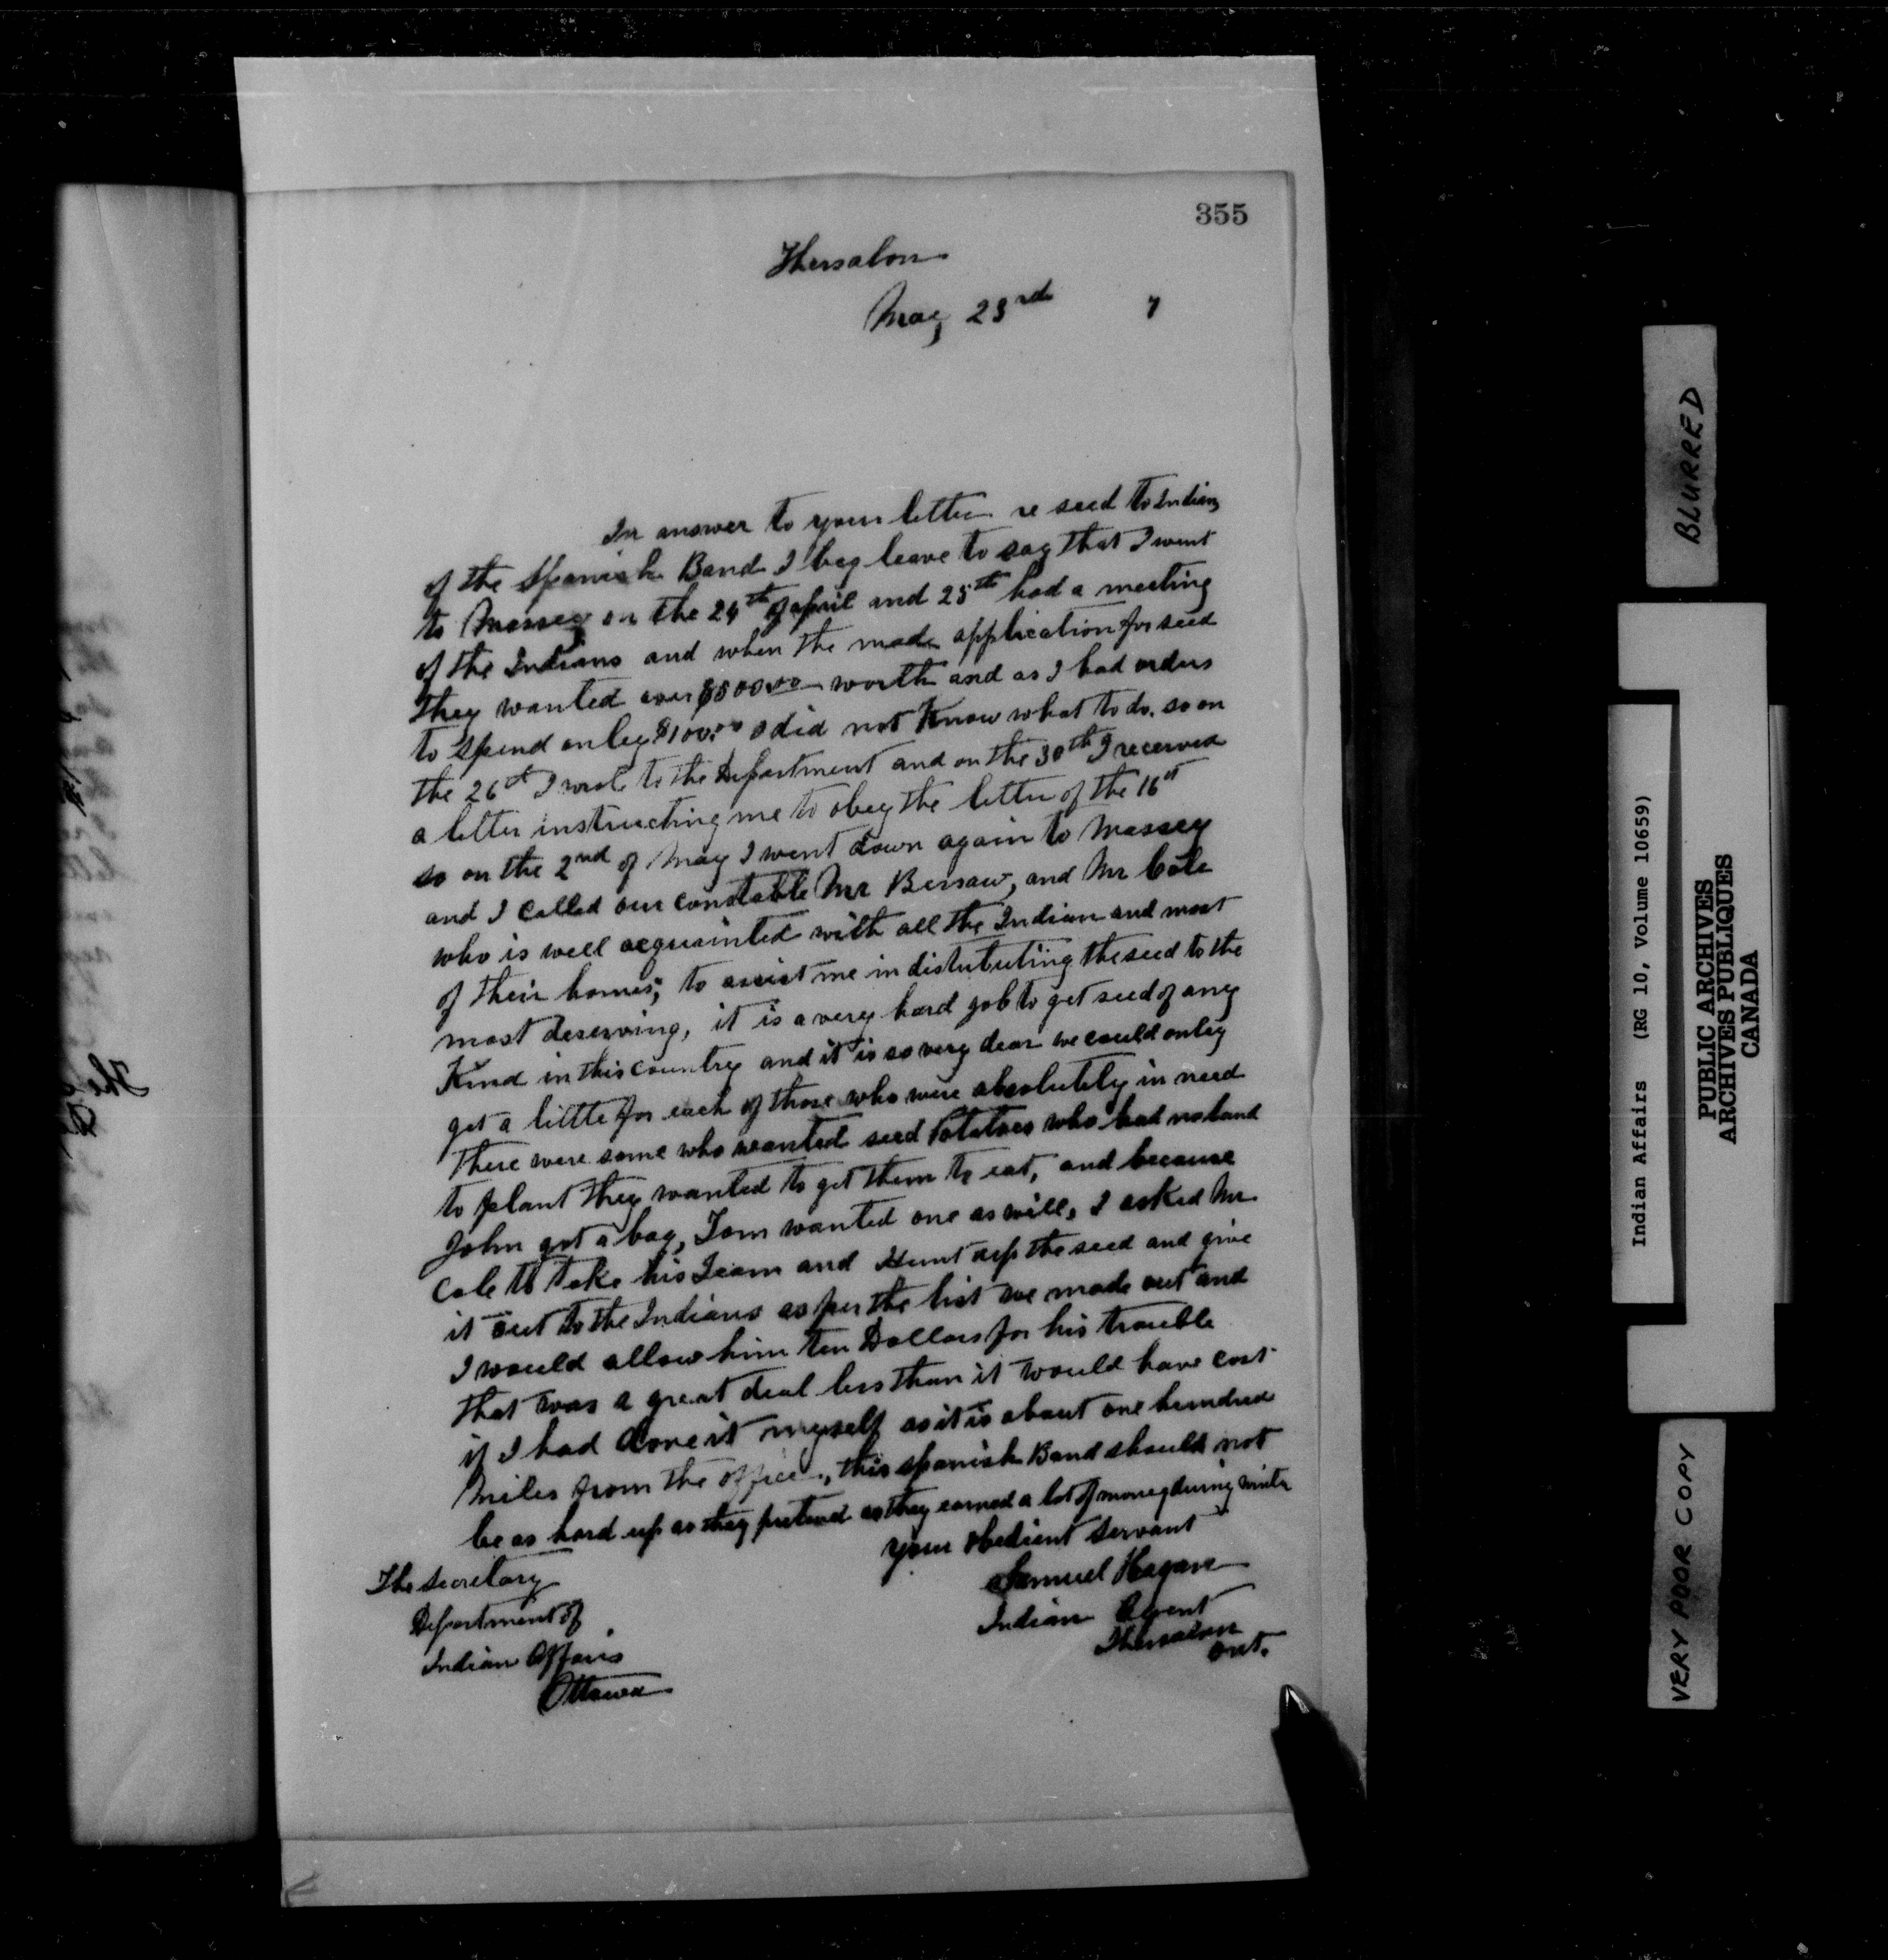 355
Thessalon
May 23rd 7
In answer to your letter re seed to Indians
of the Spanish Band I beg leave to say that I went
to Massey on the 24th of april and 25th had a meeting
of the Indians and when the made application for seed
they wanted over $500.00 worth and as I had orders
to spend onley $100.00 I did not Know what to do. so on
the 26th I wrote to the Department and on the 30th I received
a letter instructing me to obey the letter of the 16th
so on the 2nd of May I went down again to Massey
and I called our constable Mr Bersaw, and Mr Cole
who is well acquainted with all the Indian and most
of their homes, to assist me in distributing the seed to the
most deserving, it is a very hard job to get seed of any
Kind in this country and it is so very dear we could onley
get a little for each of those who were absolutely in need
There were some who wanted seed Potatoes who had no land
to plant they wanted to get them to eat, and because
John got a bag, Tom wanted one as well, I asked Mr
Cole to take his Team and Hunt up the seed and give
it out to the Indians as per the list we made out and
I would allow him ten Dollars for his trouble
that was a great deal less than it would have cost
if I had done it myself as it is about one hundred
miles from the office, this Spanish Band should not
be as hard up as they pretend as they earned a lot of money during winter
your obedient servant
Samuel Hagan
Indian Agent
Thessalon
Ont.
The Secretary
Department of
Indian Affairs
Ottawa
The
BLURRED
Indian Affairs (RG 10, Volume 10659)
PUBLIC ARCHIVES
ARCHIVES PUBLIQUES
CANADA
VERY POOR COPY